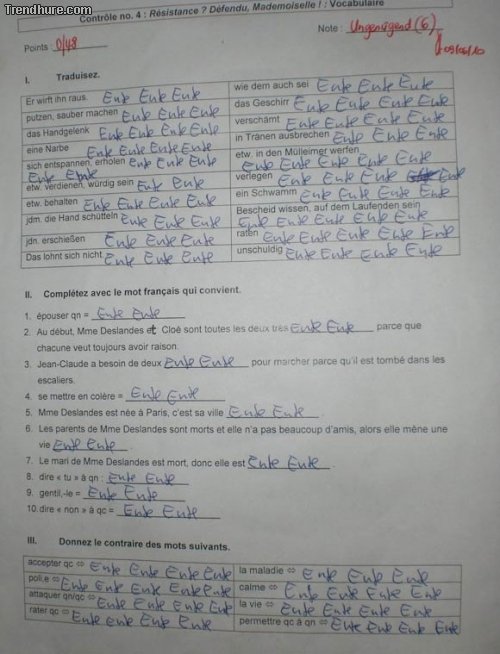 Trendhure.com
Contrôle no. 4 : Résistance ? Défendu, Mademoiselle ! : Vocabulaire
Note : Ungenügend (6)
Points : 0/48
I. Traduisez.
Er wirft ihn raus. Ente Ente Ente
wie dem auch sei Ente Ente Ente
putzen, sauber machen Ente Ente Ente
das Geschirr Ente Ente Ente Ente
das Handgelenk Ente Ente Ente Ente
verschämt Ente Ente Ente Ente
eine Narbe Ente Ente Ente Ente
in Tränen ausbrechen Ente Ente Ente
sich entspannen, erholen Ente Ente Ente Ente Ente
etw. in den Mülleimer werfen Ente Ente Ente Ente
etw. verdienen, würdig sein Ente Ente
verlegen Ente Ente Ente Ente
etw. behalten Ente Ente Ente Ente
ein Schwamm Ente Ente Ente Ente
jdm. die Hand schütteln Ente Ente Ente
Bescheid wissen, auf dem Laufenden sein Ente Ente Ente Ente
jdn. erschießen Ente Ente Ente
raten Ente Ente Ente Ente Ente
Das lohnt sich nicht Ente Ente Ente
unschuldig Ente Ente Ente Ente
II. Complétez avec le mot français qui convient.
1. épouser qn = Ente Ente
2. Au début, Mme Deslandes et Cloé sont toutes les deux très Ente Ente parce que
chacune veut toujours avoir raison.
3. Jean-Claude a besoin de deux Ente Ente pour marcher parce qu'il est tombé dans les
escaliers.
4. se mettre en colère = Ente Ente
5. Mme Deslandes est née à Paris, c'est sa ville Ente Ente.
6. Les parents de Mme Deslandes sont morts et elle n'a pas beaucoup d'amis, alors elle mène une
vie Ente Ente.
7. Le mari de Mme Deslandes est mort, donc elle est Ente Ente.
8. dire « tu » à qn : Ente Ente
9. gentil,-le = Ente Ente
10. dire « non » à qc = Ente Ente
III. Donnez le contraire des mots suivants.
accepter qc ⇔ Ente Ente Ente Ente
la maladie ⇔ Ente Ente Ente
poli,e ⇔ Ente Ente Ente Ente Ente
calme ⇔ Ente Ente Ente Ente
attaquer qn/qc ⇔ Ente Ente Ente Ente
la vie ⇔ Ente Ente Ente Ente
rater qc ⇔ Ente Ente Ente Ente
permettre qc à qn ⇔ Ente Ente Ente Ente